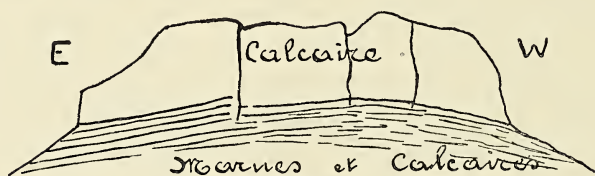 E Calcaire W
Marnes et Calcaires